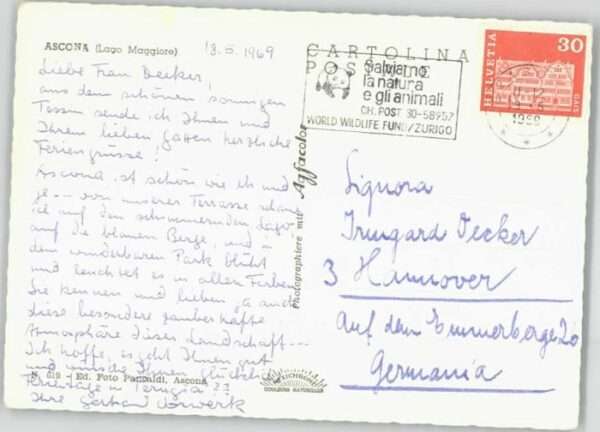 ASCONA (Lago Maggiore) 13.5.1969
Liebe Frau Decker,
aus dem schönen sonnigen
Tessin sende ich Ihnen und
Ihrem lieben Gatten herzliche
Feriengrüsse!
Ascona ist schön wie eh und
je -- von unserer Terrasse schaue
ich auf den schimmernden Lago,
auf die blauen Berge, und in
dem wunderbaren Park blüht
und leuchtet es in allen Farben
Sie kennen und lieben ja auch
diese besondere zauberhafte
Atmosphäre dieser Landschaft ---
Ich hoffe, es geht Ihnen gut
und Ihnen glückliche
Ferientage in Perugia ??
Ihre
N. 619 - Ed. Foto Pancaldi, Ascona
REXICHROM
COULEURS NATURELLES
Photographiere mit Agfacolor
CARTOLINA
POSTALE
Salviamo
la natura
e gli animali
CH. POST 80-58957
WORLD WILDLIFE FUND/ZURIGO
HELVETIA
30
1969
Signora
Irmgard Decker
3 Hannover
Auf dem Emmerberge 20
Germania